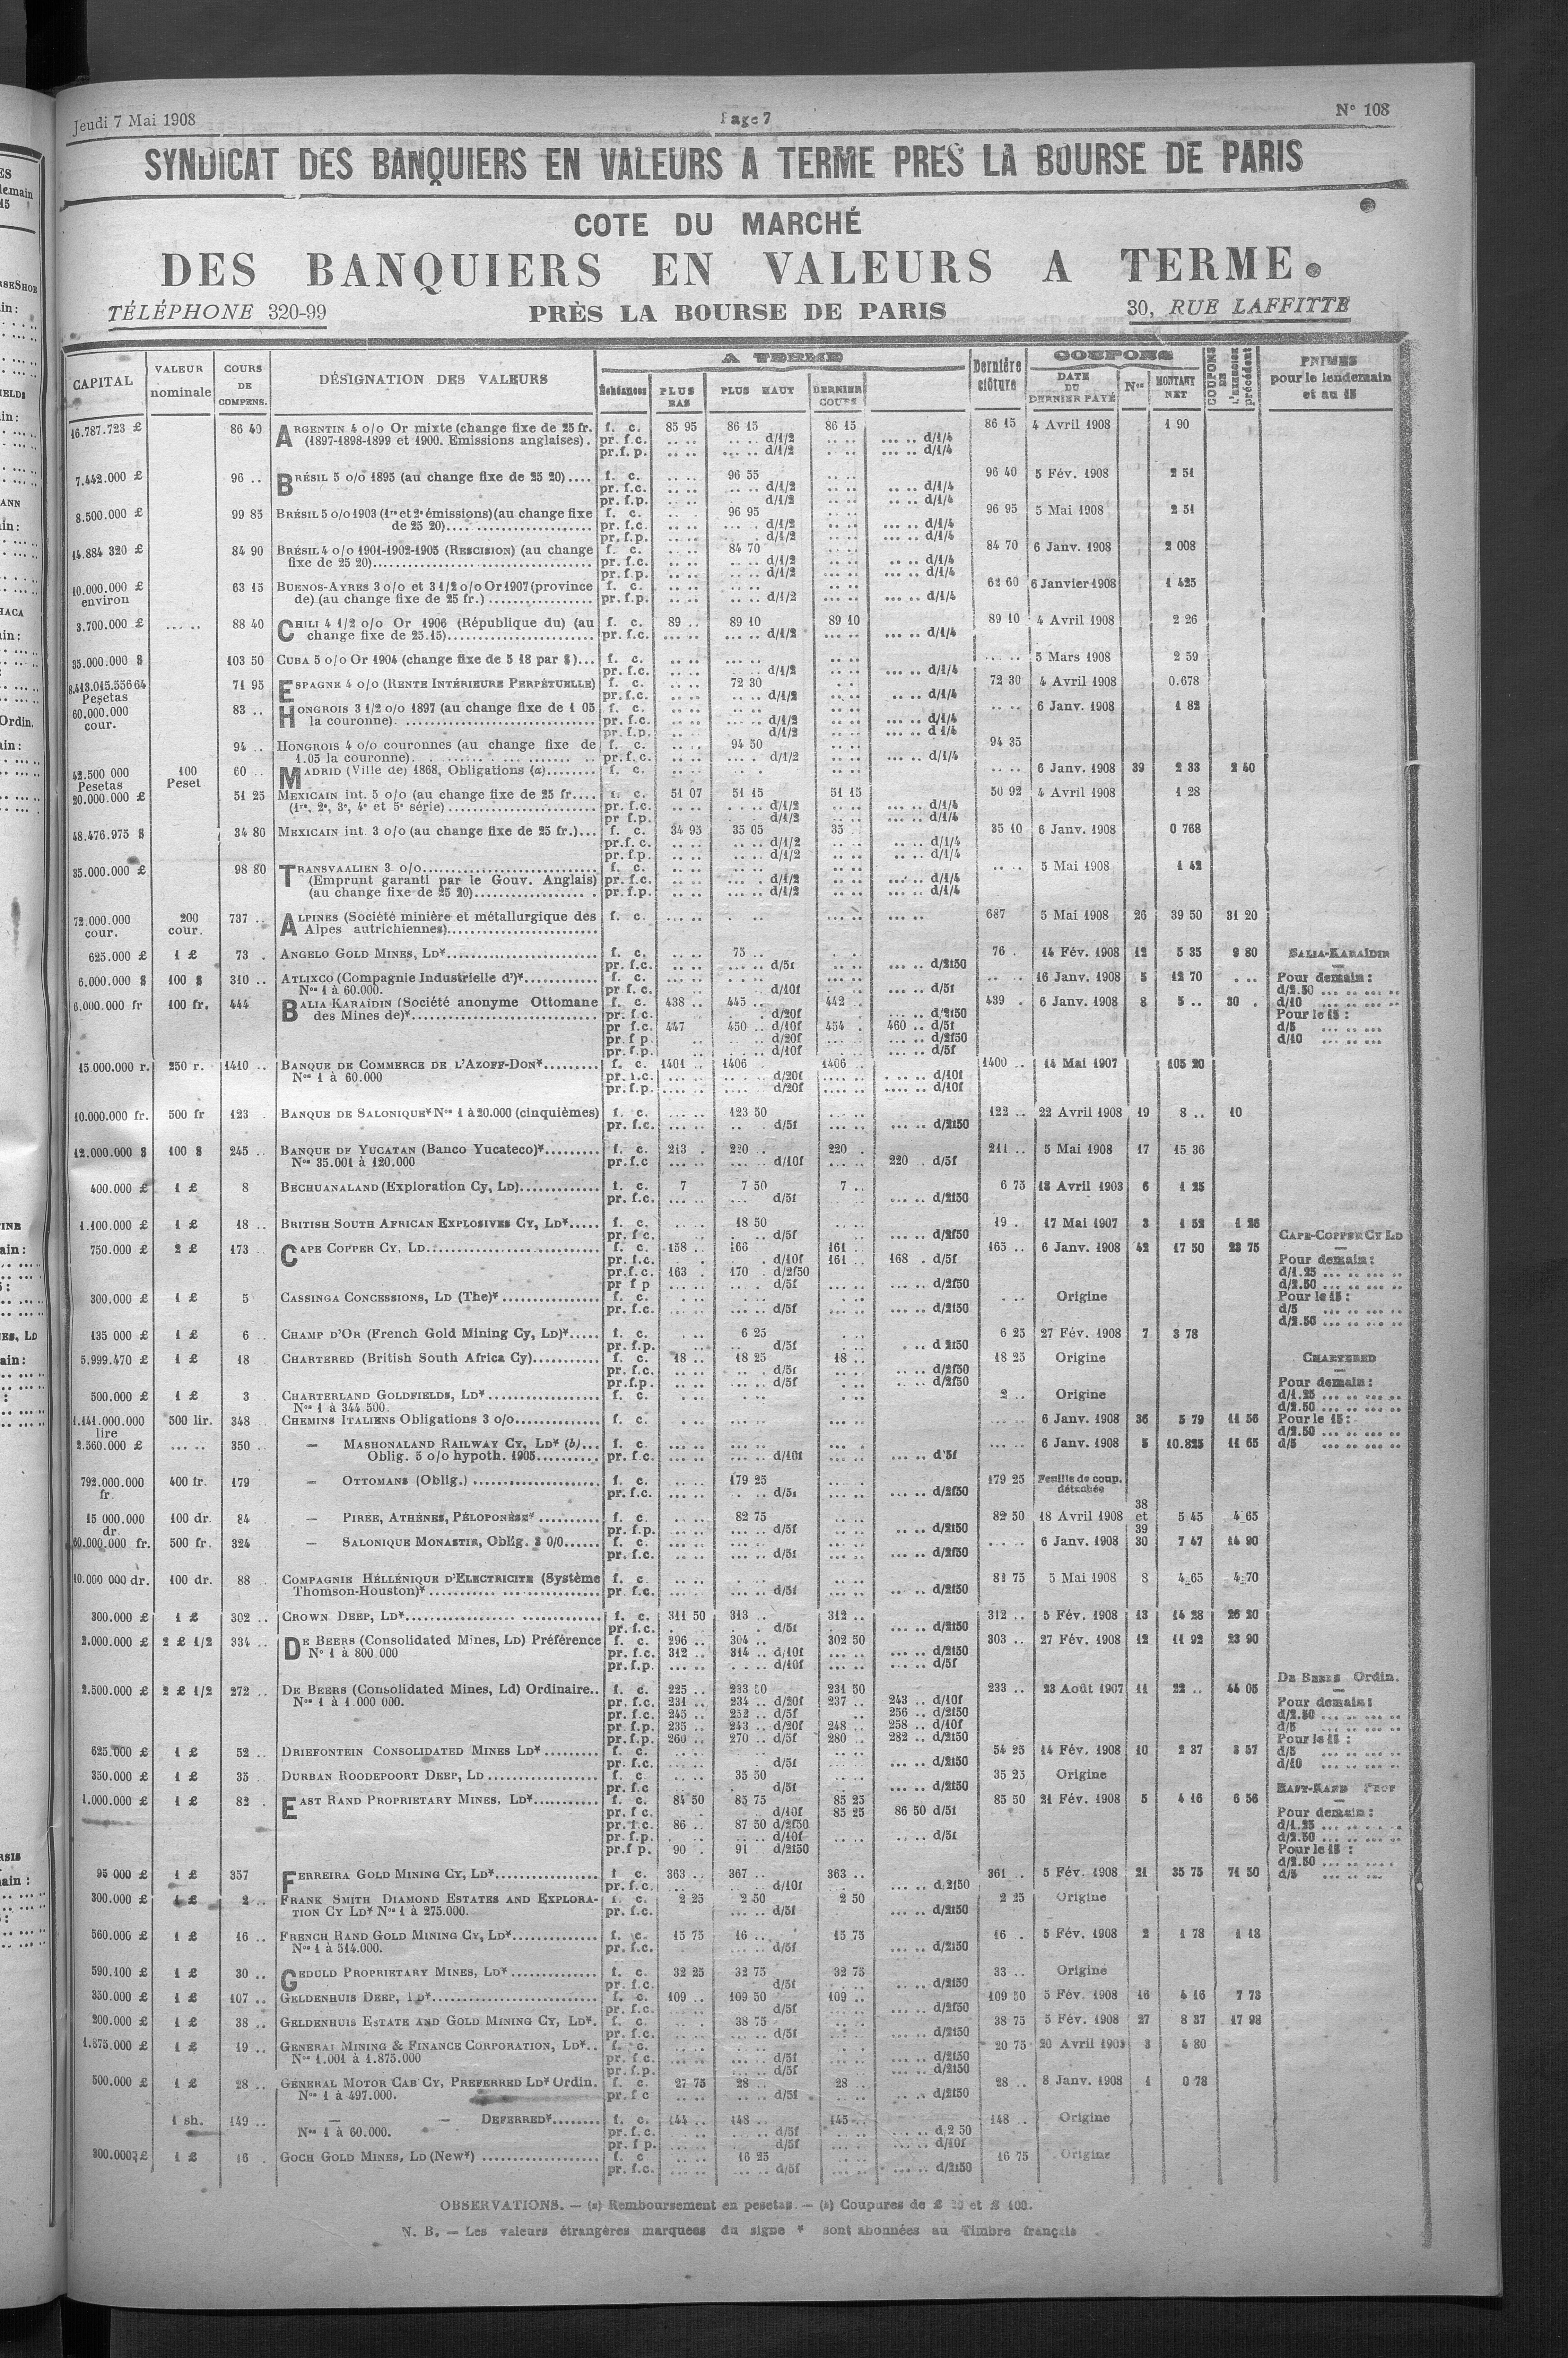 Jeudi 7 Mai 1908 Page 7 N° 108
SYNDICAT DES BANQUIERS EN VALEURS A TERME PRES LA BOURSE DE PARIS
COTE DU MARCHÉ
DES BANQUIERS EN VALEURS A TERME
TÉLÉPHONE 320-99 PRÈS LA BOURSE DE PARIS 30, RUE LAFFITTE
CAPITAL VALEUR nominale COURS DE COMPENS. DÉSIGNATION DES VALEURS A TERME Échéances PLUS BAS PLUS HAUT DERNIER COURS Dernière clôture COUPONS DATE DU DERNIER PAYÉ Nos MONTANT NET COUPONS EN L'EXERCICE précédent PRIMES pour le lendemain et au 15
16.787.723 £ 86 40 ARGENTIN 4 o/o Or mixte (change fixe de 25 fr. f. c. 85 95 86 15 86 15 86 15 4 Avril 1908 1 90
(1897-1898-1899 et 1900. Emissions anglaises). pr. f.c. .. .. .. .. d/1/2 .. .. ... .. d/1/4
pr.f.p. .. .. ... .. d/1/2 ... .. d/1/4
7.442.000 £ 96 .. BRÉSIL 5 o/o 1895 (au change fixe de 25 20).... f. c. 96 55 96 40 5 Fév. 1908 2 51
pr. f.c. d/1/2 d/1/4
pr. f.p. d/1/2 d/1/4
8.500.000 £ 99 85 BRÉSIL 5 o/o 1903 (1re et 2e émissions) (au change fixe f. c. 96 95 96 95 5 Mai 1908 2 51
de 25 20) pr. f.c. d/1/2 d/1/4
pr. f.p. d/1/2 d/1/4
14.884 320 £ 84 90 BRÉSIL 4 o/o 1901-1902-1905 (RESCISION) (au change f. c. 84 70 84 70 6 Janv. 1908 2 008
fixe de 25 20) pr. f.c. d/1/2 d/1/4
pr. f.p. d/1/2 d/1/4
10.000.000 £ 63 15 BUENOS-AYRES 3 o/o et 3 1/2 o/o Or 1907 (province f. c. 62 60 6 Janvier 1908 1 425
environ de) (au change fixe de 25 fr.) pr. f.p. d/1/2 d/1/4
3.700.000 £ ... .. 88 40 CHILI 4 1/2 o/o Or 1906 (République du) (au f. c. 89 .. 89 10 89 10 89 10 4 Avril 1908 2 26
change fixe de 25.15) pr. f.c. d/1/2 d/1/4
35.000.000 $ 103 50 CUBA 5 o/o Or 1904 (change fixe de 5 18 par $)... f. c. 5 Mars 1908 2 59
pr. f.c. d/1/2 d/1/4
8.413.015.556 64 71 95 ESPAGNE 4 o/o (RENTE INTÉRIEURE PERPÉTUELLE) f. c. 72 30 72 30 4 Avril 1908 0.678
Pesetas pr. f.c. d/1/2 d/1/4
60.000.000 83 .. HONGROIS 3 1/2 o/o 1897 (au change fixe de 1 05 f. c. 6 Janv. 1908 1 82
cour. la couronne) pr. f.c. d/1/2 d/1/4
pr. f.p. d/1/2 d 1/4
94 .. HONGROIS 4 o/o couronnes (au change fixe de f. c. 94 50 94 35
1.05 la couronne) pr. f.c. d/1/2 d/1/4
42.500 000 100 60 .. MADRID (Ville de) 1868, Obligations (a) f. c. 6 Janv. 1908 39 2 33 2 40
Pesetas Peset
20.000.000 £ 51 25 MEXICAIN int. 5 o/o (au change fixe de 25 fr.... f. c. 51 07 51 15 51 15 50 92 4 Avril 1908 1 28
(1re, 2e, 3e, 4e et 5e série) pr. f.c. d/1/2 d/1/4
pr f.p. d/1/2 d/1/4
48.476.975 $ 34 80 MEXICAIN int. 3 o/o (au change fixe de 25 fr.)... f. c. 34 95 35 05 35 . 35 10 6 Janv. 1908 0 768
pr. f. c. d/1/2 d/1/4
pr. f.p. d/1/2 d/1/4
35.000.000 £ 98 80 TRANSVAALIEN 3 o/o f. c. 5 Mai 1908 1 42
(Emprunt garanti par le Gouv. Anglais) pr. f.c. d/1/2 d/1/4
(au change fixe de 25 20) pr. f.p. d/1/2 d/1/4
72.000.000 200 737 .. ALPINES (Société minière et métallurgique des f. c. 687 5 Mai 1908 26 39 50 31 20
cour. cour. Alpes autrichiennes)
625.000 £ 1 £ 73 . ANGELO GOLD MINES, LD* f. c. 75 .. 76 . 14 Fév. 1908 12 5 35 9 80 BALIA-KARAÏDIN
pr. f.c. d/5f d/2f50
6.000.000 $ 100 $ 310 .. ATLIXCO (Compagnie Industrielle d')* f. c. 16 Janv. 1908 5 12 70 Pour demain :
Nos 1 à 60.000. pr f. c. d/10f d/5f d/2.50
6.000.000 fr 100 fr. 444 BALIA KARAÏDIN (Société anonyme Ottomane f. c. 438 .. 445 .. 442 .. 439 . 6 Janv. 1908 8 5 .. 30 . d/10
des Mines de)* pr. f.c. d/20f d/2f50 Pour le 15 :
pr f.c. 447 450 .. d/10f 454 . 460 .. d/5f d/5
pr. f p. d/20f d/2f50 d/10
pr. f.p. d/10f d/5f
15.000.000 r. 250 r. 1410 .. BANQUE DE COMMERCE DE L'AZOFF-DON* f. c. 1401 .. 1406 1406 .. 1400 .. 14 Mai 1907 105 20
Nos 1 à 60.000 pr. f.c. d/20f d/10f
pr. f.p. d/20f d/10f
10.000.000 fr. 500 fr 123 BANQUE DE SALONIQUE* Nos 1 à 20.000 (cinquièmes) f. c. 123 50 122 .. 22 Avril 1908 19 8 .. 10
pr. f.c. d/5f d/2f50
12.000.000 $ 100 $ 245 .. BANQUE DE YUCATAN (Banco Yucateco)* f. c. 213 . 220 . 220 . 211 .. 5 Mai 1908 17 15 36
Nos 35.001 à 120.000 pr. f.c d/10f 220 . d/5f
400.000 £ 1 £ 8 BECHUANALAND (Exploration Cy, LD) f. c. 7 7 50 7 .. 6 75 18 Avril 1903 6 1 25
pr. f.c. d/5f d/2f50
1.100.000 £ 1 £ 18 .. BRITISH SOUTH AFRICAN EXPLOSIVES CY, LD* f. c. 18 50 19 . 17 Mai 1907 3 1 52 1 26
pr. f c. d/5f d/2f50 CAPE-COPPER CY LD
750.000 £ 2 £ 173 CAPE COPPER CY, LD f. c. 158 .. 166 161 .. 165 .. 6 Janv. 1908 42 17 50 23 75
pr. f.c. d/10f 161 .. 168 . d/5f Pour demain :
pr. f.c. 163 . 170 . d/2f50 d/1.25
pr f p d/5f d/2f50 d/2.50
300.000 £ 1 £ 5 CASSINGA CONCESSIONS, LD (The)* f. c. Origine Pour le 15 :
pr. f.c. d/5f d/2f50 d/5
d/2.50
135 000 £ 1 £ 6 .. CHAMP D'OR (French Gold Mining Cy, LD)* f. c. 6 25 6 25 27 Fév. 1908 7 3 78
pr. f.p. d/5f d 2f50
5.999.470 £ 1 £ 18 CHARTERED (British South Africa Cy) f. c. 18 .. 18 25 18 .. 18 25 Origine CHARTERED
pr. f.c. d/5f d/2f50
pr. f.p. d/5f d/2f50 Pour demain :
500.000 £ 1 £ 3 CHARTERLAND GOLDFIELDS, LD* f. c. 2 .. Origine d/1.25
Nos 1 à 344.500. d/2.50
1.141.000.000 500 lir. 348 CHEMINS ITALIENS Obligations 3 o/o f. c. 6 Janv. 1908 36 5 79 11 56 Pour le 15 :
lire d/2.50
2.560.000 £ 350 — MASHONALAND RAILWAY CY, LD* (b)... f. c. 6 Janv. 1908 5 10.825 11 65 d/5
Oblig. 5 o/o hypoth. 1905 pr. f.c. d/10f d'5f
792.000.000 400 fr. 179 — OTTOMANS (Oblig.) f. c. 179 25 179 25 Feuille de coup.
fr. pr. f.c. d/5f d/2f50 détachée
15 000.000 100 dr. 84 — PIRÉE, ATHÈNES, PÉLOPONÈSE* f. c. 82 75 82 50 18 Avril 1908 38 et 39 5 45 4 65
dr. pr. f.p. d/5f d/2f50
60.000.000 fr. 500 fr. 324 — SALONIQUE MONASTIR, Oblig. 3 0/0 f. c. 6 Janv. 1908 30 7 47 14 90
pr. f.c. d/5f d/2f50
10.000 000 dr. 100 dr. 88 COMPAGNIE HÉLLÉNIQUE D'ELECTRICITE (Système f. c. 81 75 5 Mai 1908 8 4 65 4 70
Thomson-Houston)* pr. f.c. d/5f d/2f50
300.000 £ 1 £ 302 .. CROWN DEEP, LD* f. c. 311 50 313 .. 312 .. 312 .. 5 Fév. 1908 13 14 28 26 20
pr. f.c. d/5f d/2f50
2.000.000 £ 2 £ 1/2 334 .. DE BEERS (Consolidated Mines, LD) Préférence f. c. 296 .. 304 .. 302 50 303 .. 27 Fév. 1908 12 11 92 23 90
No 1 à 800.000 pr. f.c. 312 .. 314 .. d/10f d/2f50
pr. f.p. d/10f d/5f
DE BEERS Ordin.
2.500.000 £ 2 £ 1/2 272 .. DE BEERS (Consolidated Mines, Ld) Ordinaire.. f. c. 225 .. 233 50 231 50 233 .. 23 Août 1907 11 22 .. 44 05
Nos 1 à 1.000 000. pr. f.c. 231 .. 234 .. d/20f 237 .. 243 .. d/10f Pour demain :
pr. f.c. 245 .. 252 .. d/5f 256 .. d/2f50 d/2.50
pr. f.p. 235 .. 243 .. d/20f 248 .. 258 .. d/10f d/5
pr. f.p. 260 .. 270 .. d/5f 280 .. 282 .. d/2f50 Pour le 15 :
625.000 £ 1 £ 52 .. DRIEFONTEIN CONSOLIDATED MINES LD* f. c. 54 25 14 Fév. 1908 10 2 37 3 57 d/5
pr. f.c. d/5f d/2f50 d/10
350.000 £ 1 £ 35 DURBAN ROODEPOORT DEEP, LD f. c 35 50 35 25 Origine
pr. f.c d/5f d/2f50 EAST-RAND PROP
1.000.000 £ 1 £ 82 . EAST RAND PROPRIETARY MINES, LD* f. c. 84 50 85 75 85 25 85 50 21 Fév. 1908 5 4 16 6 56
pr. f c. d/10f 85 25 86 50 d/5f Pour demain :
pr. f.c. 86 .. 87 50 d/2f50 d/1.25
pr. f.p. d/10f d/5f d/2.50
pr. f p. 90 . 91 d/2f50 Pour le 15 :
d/2.50
95 000 £ 1 £ 357 FERREIRA GOLD MINING CY, LD* f. c. 363 .. 367 .. 363 .. 361 . 5 Fév. 1908 21 35 75 71 50 d/5
pr. f.c. d/10f d/2f50
300.000 £ 1 £ 2 .. FRANK SMITH DIAMOND ESTATES AND EXPLORA- f. c. 2 25 2 50 2 50 2 25 Origine
TION CY LD* Nos 1 à 275.000. pr. f.c. d/5f d/2f50
560.000 £ 1 £ 16 .. FRENCH RAND GOLD MINING CY, LD* f. c. 15 75 16 .. 15 75 16 . 5 Fév. 1908 2 1 78 1 18
Nos 1 à 514.000. pr. f.c. d/5f d/2f50
590.100 £ 1 £ 30 .. GEDULD PROPRIETARY MINES, LD* f. c. 32 25 32 75 32 75 33 .. Origine
pr. f.c. d/5f d/2f50
350.000 £ 1 £ 107 .. GELDENHUIS DEEP, LD* f. c. 109 .. 109 50 109 .. 109 50 5 Fév. 1908 16 4 16 7 73
pr. f.c. d/5f d/2f50
200.000 £ 1 £ 38 .. GELDENHUIS ESTATE AND GOLD MINING CY, LD*. f. c. 38 75 38 75 5 Fév. 1908 27 8 37 17 98
pr. f.c. d/5f d/2f50
1.875.000 £ 1 £ 19 .. GENERAL MINING & FINANCE CORPORATION, LD*.. f. c. 20 75 20 Avril 1905 3 4 80
Nos 1.001 à 1.875.000 pr. f.c. d/5f d/2f50
pr. f.p. d/5f d/2f50
500.000 £ 1 £ 28 .. GÉNERAL MOTOR CAB CY, PREFERRED LD* Ordin. f. c. 27 75 28 .. 28 .. 28 .. 8 Janv. 1908 1 0 78
Nos 1 à 497.000. pr. f c d/5f d/2f50
1 sh. 149 .. — — DEFERRED* f. c. 144 .. 148 .. 145 .. 148 .. Origine
Nos 1 à 60.000. pr. f.c. d/5f d 2 50
pr. f p. d/5f d/10f
300.000 £ 1 £ 16 . GOCH GOLD MINES, LD (New*) f. c 16 25 16 75 Origine
pr. f.c. d/5f d/2f50
OBSERVATIONS. — (a) Remboursement en pesetas. — (b) Coupures de £ 20 et £ 100.
N. B. — Les valeurs étrangères marquees du signe * sont abonnées au Timbre français